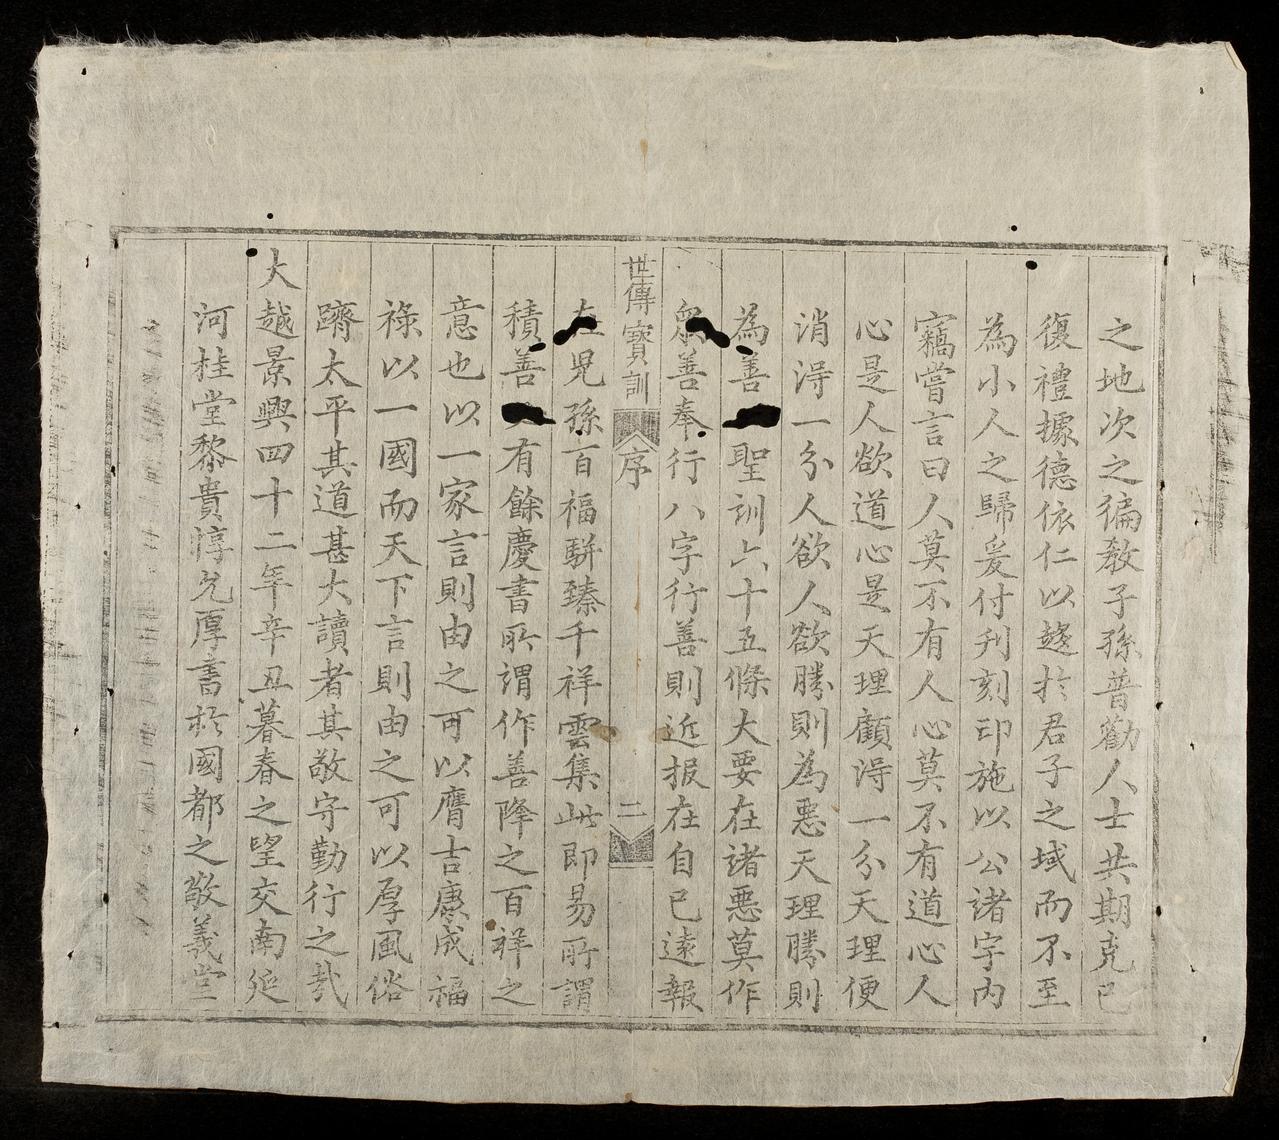 之地次之徧敎子孫普勸人士共期克己
復禮據德依仁以趍扵君子之域而不至
為小人之歸爰付刋刻印施以公諸宇内
竊嘗言曰人莫不有人心莫不有道心人
心是人欲道心是天理顧淂一分天理便
消淂一分人欲人欲勝則為惡天理勝則
為善聖訓六十五條大要在諸惡莫作
衆善奉行八字行善則近报在自己遠報
在児孫百福駢臻千祥雲集此即易所謂
積善有餘慶書所謂作善降之百祥之
意也以一家言則由之可以膺吉康成福
祿以一國而天下言則由之可以厚風俗
躋太平其道甚大讀者其敬守勤行之㦲
大越景興四十二年辛丑暮春之望交南延
河桂堂黎貴惇允厚書扵國都之敬義堂
世傳寳訓
序
二